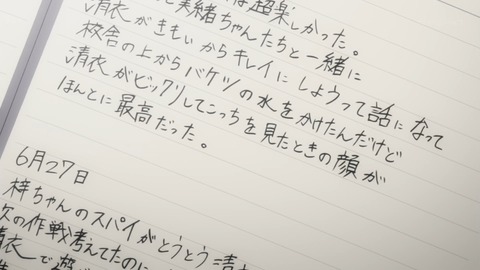 は超楽しかった。
実緒ちゃんたちと一緒に
清衣がきもいからキレイにしようって話になって
校舎の上からバケツの水をかけたんだけど
清衣がビックリしてこっちを見たときの顔が
ほんとに最高だった。
6月27日
梓ちゃんのスパイがとうとう清
次の作戦考えてたのに
清衣で遊